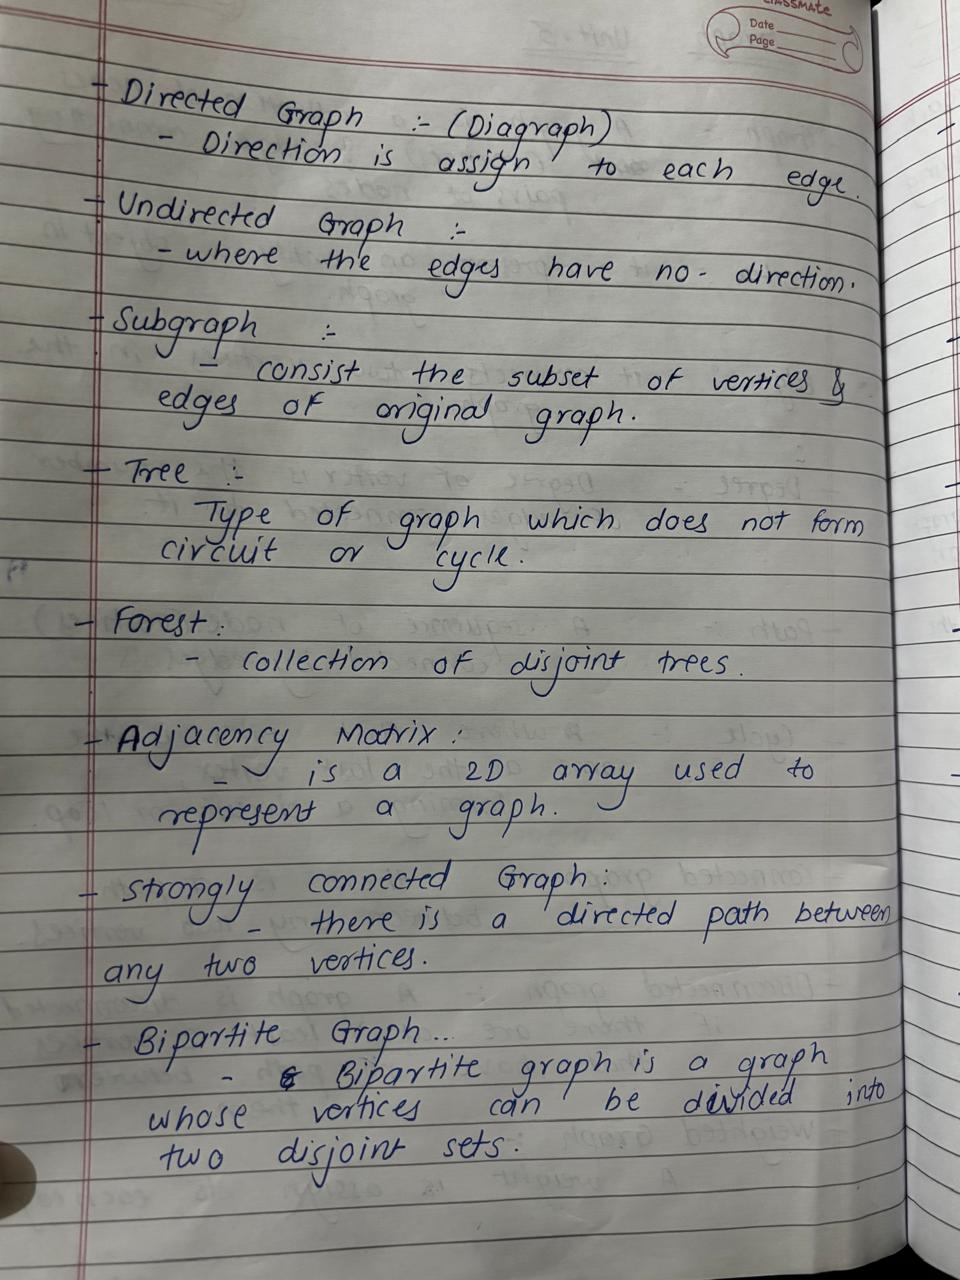 CLASSMATE
Date
Page
- Directed Graph :- (Diagraph)
- Direction is assign to each edge.
- Undirected Graph :-
- where the edges have no- direction.
- Subgraph :-
- consist the subset of vertices &
edges of original graph.
- Tree :-
Type of graph which does not form
circuit or cycle.
- Forest:
- collection of disjoint trees.
- Adjacency Matrix:
- is a 2D array used to
represent a graph.
- strongly connected Graph:
- there is a directed path between
any two vertices.
- Bipartite Graph..
- Bipartite graph is a graph
whose vertices can be divided into
two disjoint sets.